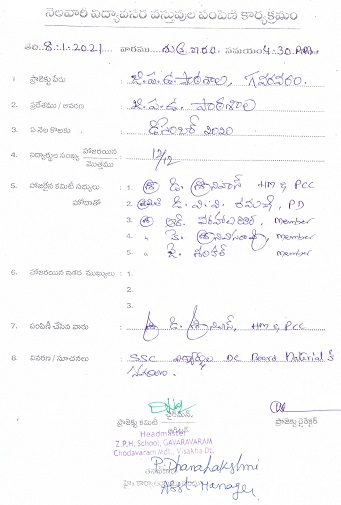 నెలవారీ విద్యావసర వస్తువుల పంపిణీ కార్యక్రమం
తేది. 8.1.2021 వారము శుక్రవారం సమయం 4.30 P.M.
1 ప్రాజెక్టు పేరు : జి.ప.ఉ. పాఠశాల, గవరవరం.
2. ప్రదేశము / ఆవరణ : జి.ప.ఉ. పాఠశాల
3. ఏ నెల కొరకు : డిసెంబర్ 2020
4. విద్యార్థుల సంఖ్య హాజరయిన / మొత్తము : 12/12
5. హాజరైన కమిటీ సభ్యులు : 1. శ్రీ డి. శ్రీనివాస్ HM & PCC
హోదాతో 2. శ్రీమతి డి. వి. వి. రమణి, P.D
3. శ్రీ ఆర్. member
4. " కె. శ్రీనివాసరావు, member
5. " జి. శంకర్ member
6. హాజరయిన ఇతర ముఖ్యులు : 1.
2.
3.
7. పంపిణీ చేసిన వారు : శ్రీ డి. శ్రీనివాస్, HM & PCC
8. వివరణ / సూచనలు : SSC విద్యార్థులకు DC Board Material
ఛైర్మన్,
ప్రాజెక్టు కమిటీ
ప్రాజెక్టు డైరెక్టర్
Headmaster
Z.P.H. School, GAVARAVARAM
Chodavaram Mdl., Visakha Dt.
P. Dhanalakshmi
Asst Manager